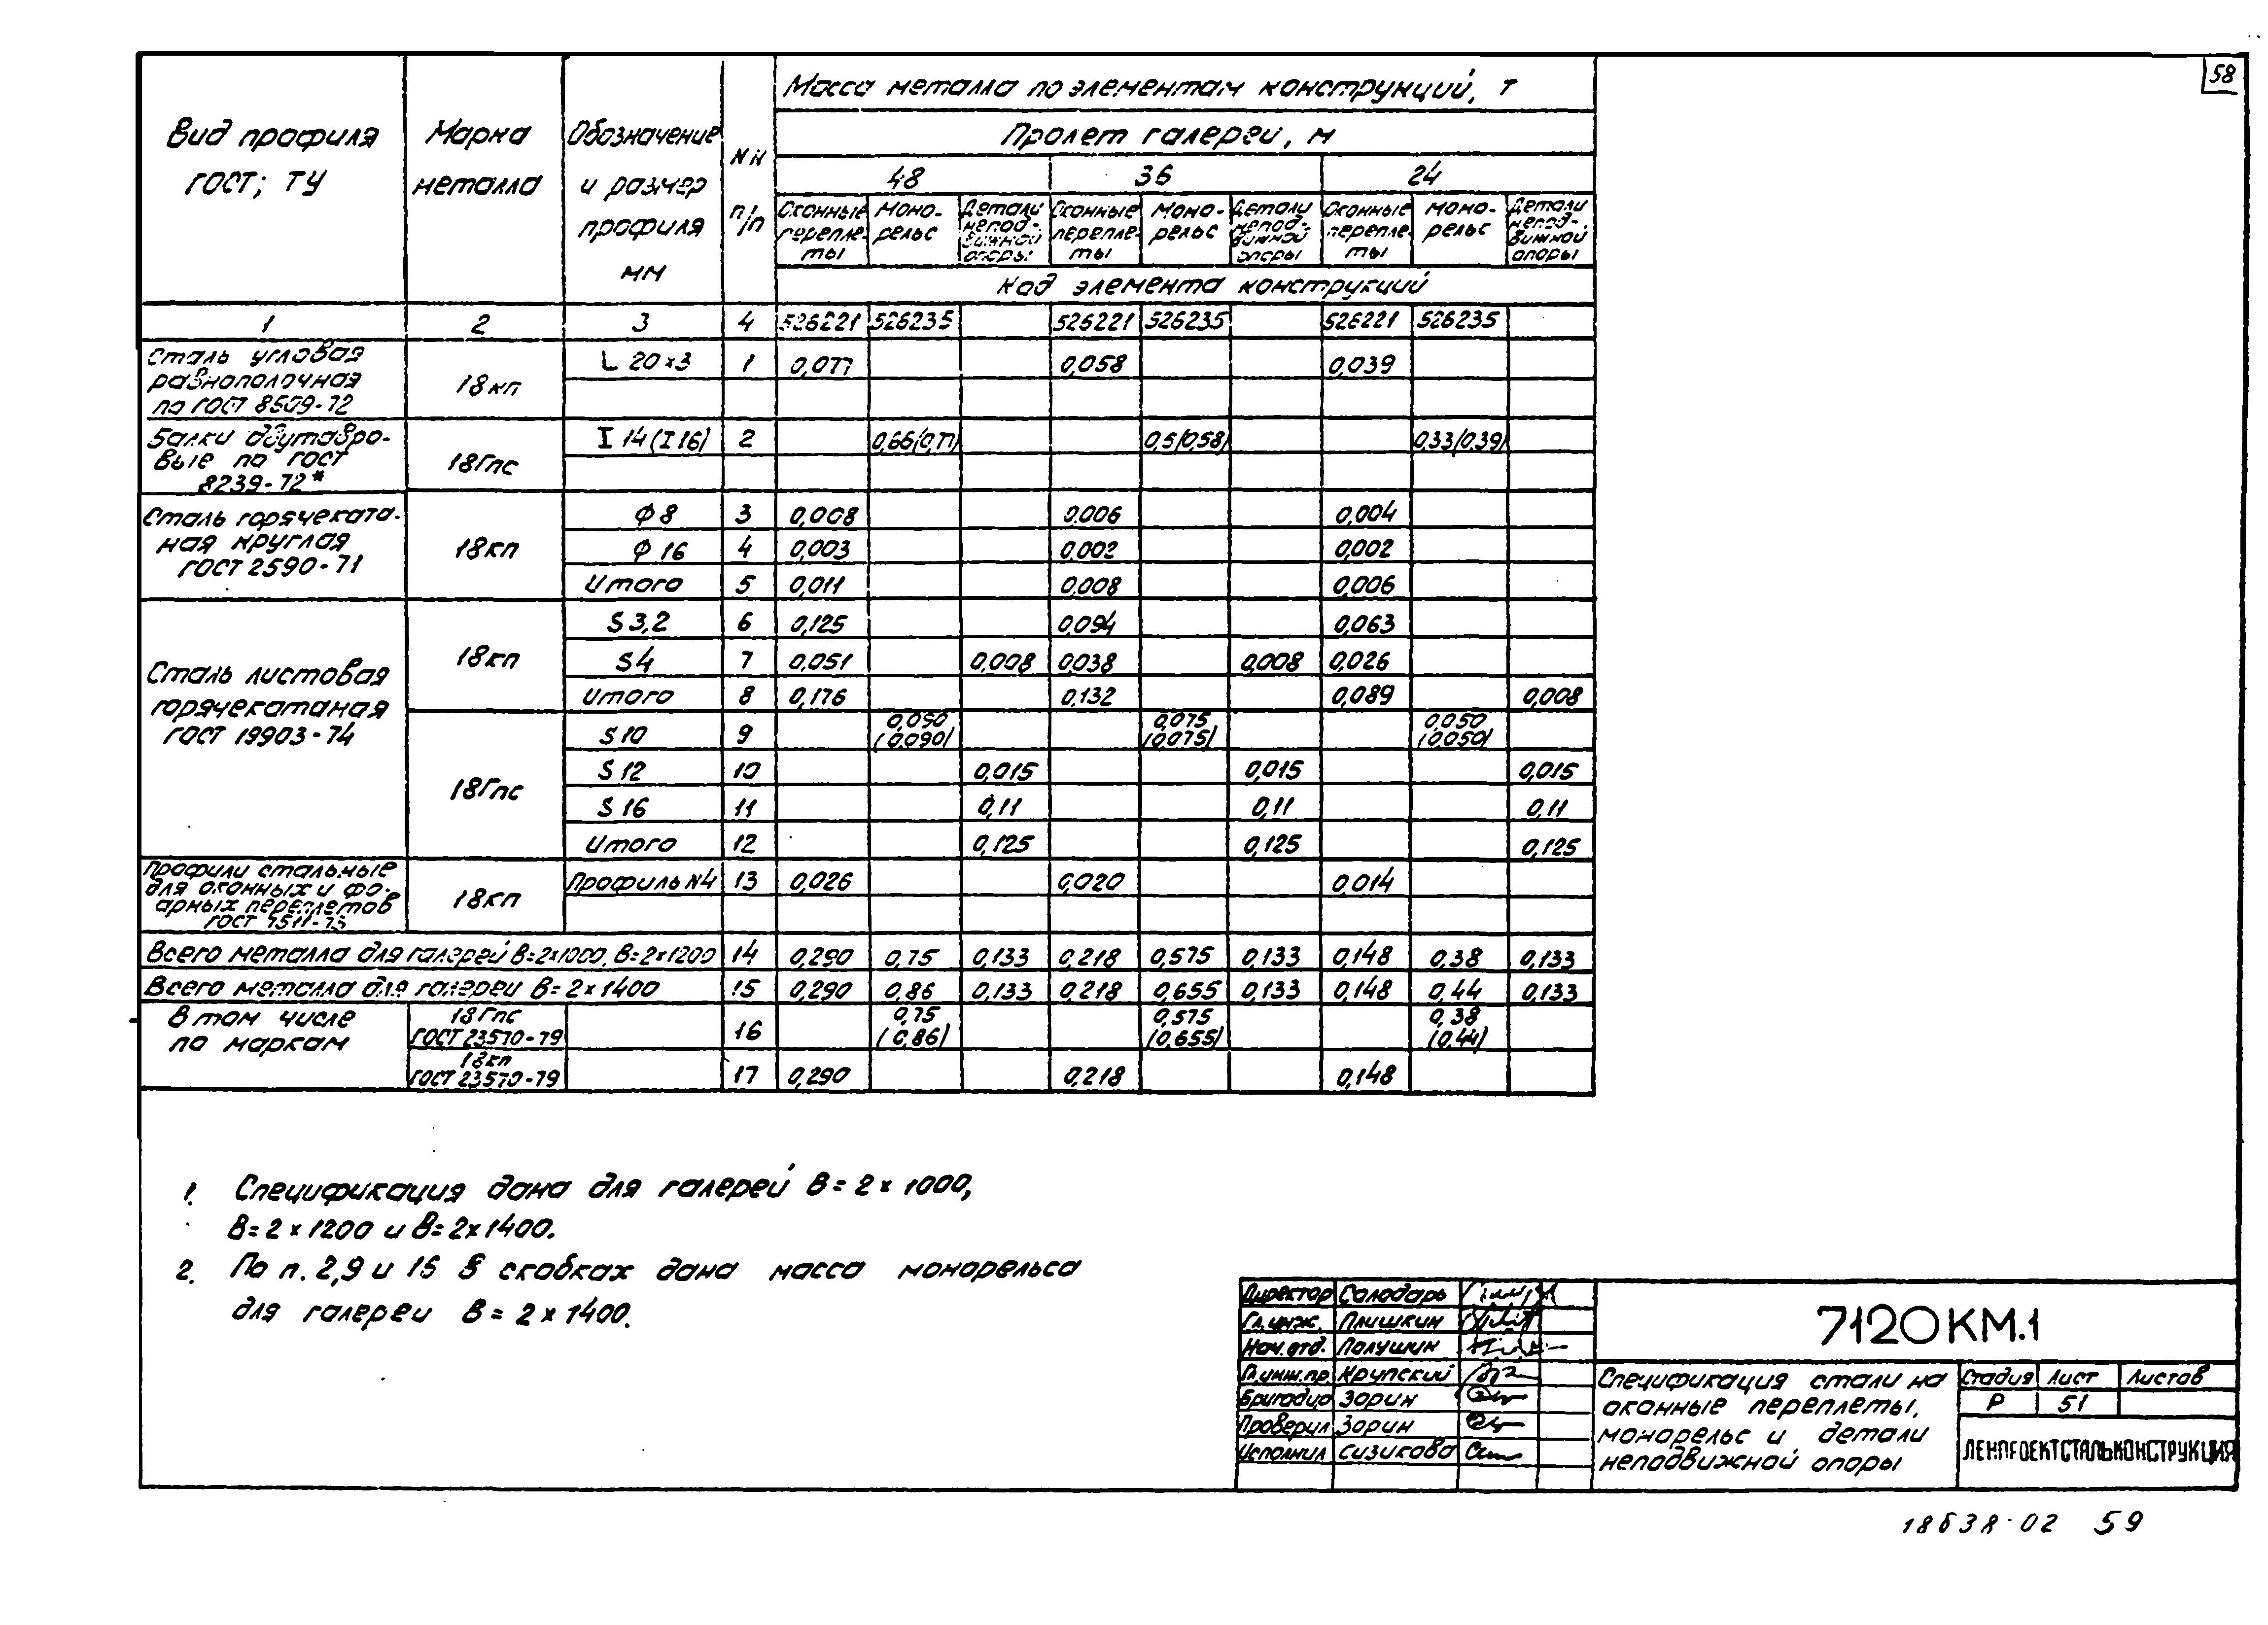 58
Масса металла по элементам конструкций, т
Вид профиля ГОСТ; ТУ
Марка металла
Обозначение и размер профиля мм
NN п/п
Пролет галереи, м
48 36 24
Оконные перепле-ты Моно-рельс Детали непод-вижной опоры Оконные перепле-ты Моно-рельс Детали непод-вижной опоры Оконные перепле-ты Моно-рельс Детали непод-вижной опоры
Код элемента конструкций
1 2 3 4 526221 526235 526221 526235 526221 526235
Сталь угловая
равнополочная
по ГОСТ 8509-72
18кп
L 20×3 1 0,077 0,058 0,039
Балки двутавро-
вые по ГОСТ
8239-72*
18Гпс
I 14 (I 16) 2 0,66(0,77) 0,5(0,58) 0,33(0,39)
Сталь горячеката-
ная круглая
ГОСТ 2590-71
18кп
Ф 8 3 0,008 0,006 0,004
Ф 16 4 0,003 0,002 0,002
Итого 5 0,011 0,008 0,006
Сталь листовая
горячекатаная
ГОСТ 19903-74
18кп
S 3,2 6 0,125 0,094 0,063
S 4 7 0,051 0,008 0,038 0,008 0,026
Итого 8 0,176 0,132 0,089 0,008
18Гпс
S 10 9 0,090 (0,090) 0,075 (0,075) 0,050 (0,050)
S 12 10 0,015 0,015 0,015
S 16 11 0,11 0,11 0,11
Итого 12 0,125 0,125 0,125
Профили стальные
для оконных и фо-
нарных переплетов
ГОСТ 7511-73
18кп
Профиль N4 13 0,026 0,020 0,014
Всего металла для галерей В=2×1000, В=2×1200 14 0,290 0,75 0,133 0,218 0,575 0,133 0,148 0,38 0,133
Всего металла для галереи В=2×1400 15 0,290 0,86 0,133 0,218 0,655 0,133 0,148 0,44 0,133
В том числе
по маркам
18Гпс ГОСТ 23570-79 16 0,75 (0,86) 0,575 (0,655) 0,38 (0,44)
18кп ГОСТ 23570-79 17 0,290 0,218 0,148
1. Спецификация дана для галерей В=2×1000,
В=2×1200 и В=2×1400.
2. По п. 2,9 и 16 в скобках дана масса монорельса
для галереи В=2×1400.
Директор Солодарь
Гл.инж. Плишкин
Нач.отд. Полушин
Гл.инж.пр. Крупский
Бригадир Зорин
Проверил Зорин
Исполнил Сизикова
7120КМ.1
Спецификация стали на
оконные переплеты,
монорельс и детали
неподвижной опоры
Стадия Лист Листов
Р 51
ЛЕНПРОЕКТСТАЛЬКОНСТРУКЦИЯ
18638-02 59